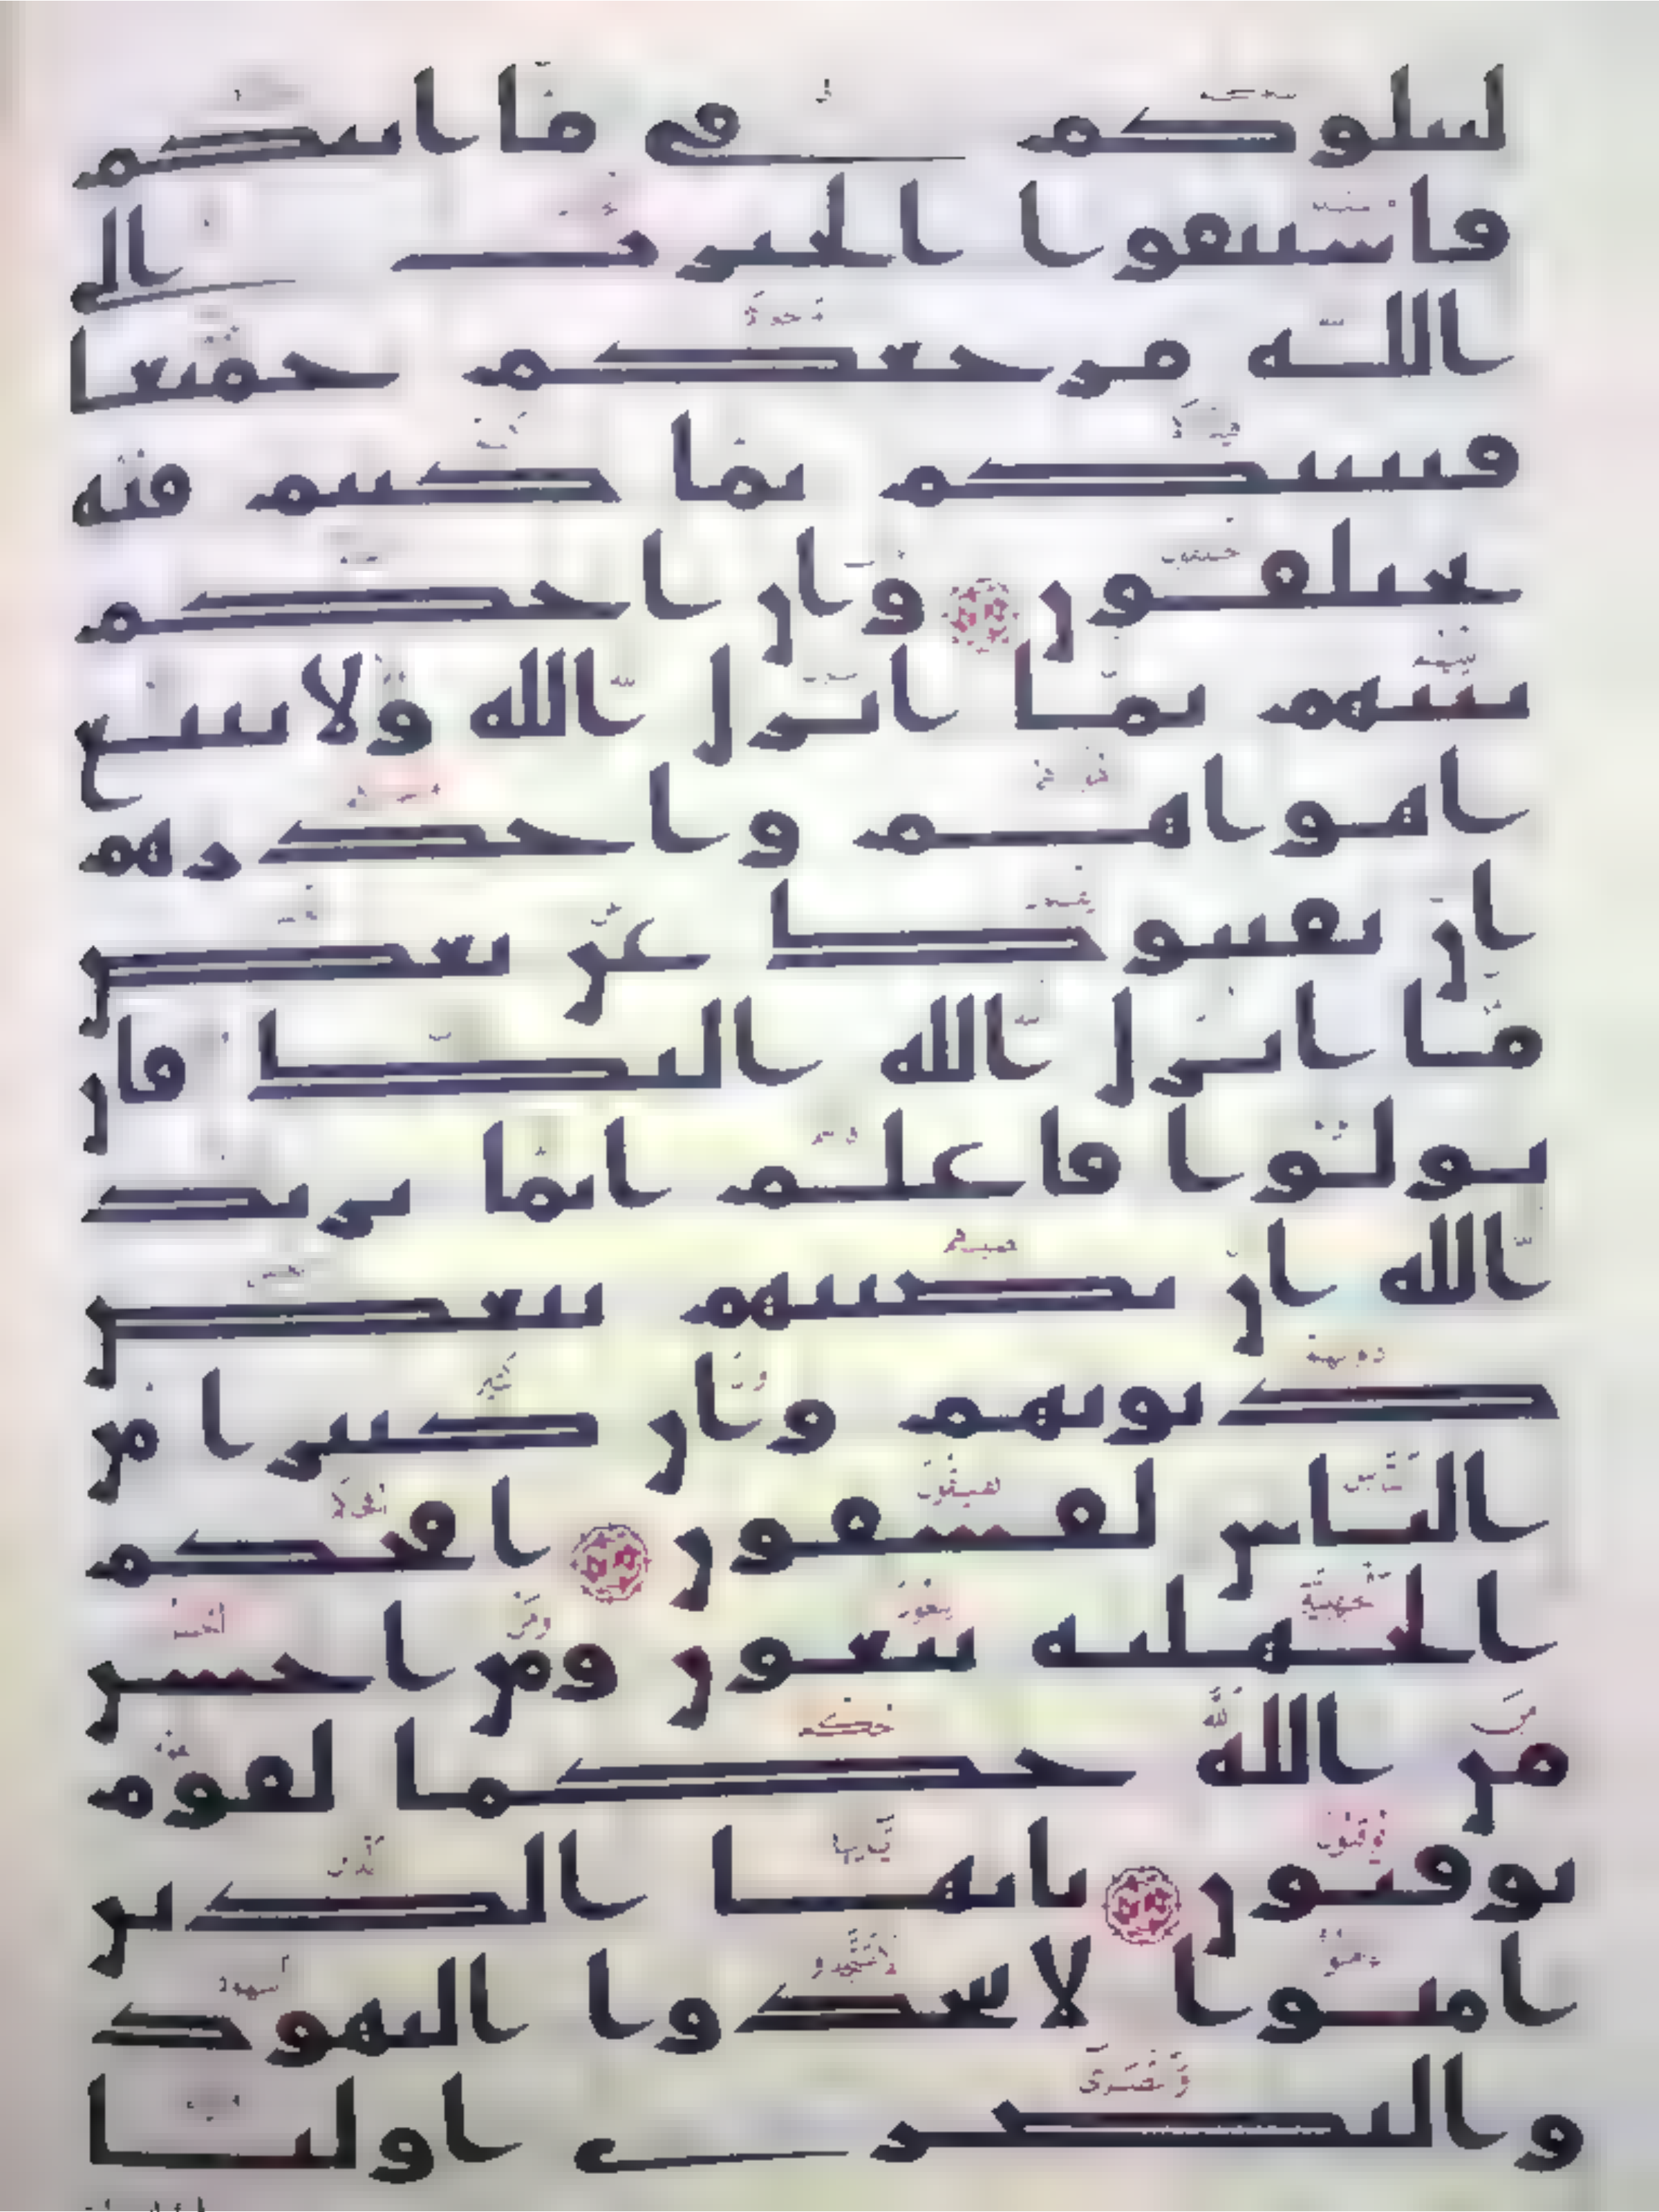 ليبلوكم في ما اتيكم
فاستبقوا الخيرت الى
الله مرجعكم جميعا
فينبئكم بما كنتم فيه
تختلفون وان احكم
بينهم بما انزل الله ولا تتبع
اهواهم واحذرهم
ان يفتنوك عن بعض
ما انزل الله اليك فان
تولوا فاعلم انما يريد
الله ان يصيبهم ببعض
ذنوبهم وان كثيرا من
الناس لفسقون افحكم
الجهلية يبغون ومن احسن
من الله حكما لقوم
يوقنون يايها الذين
امنوا لا تتخذوا اليهود
والنصرى اوليا